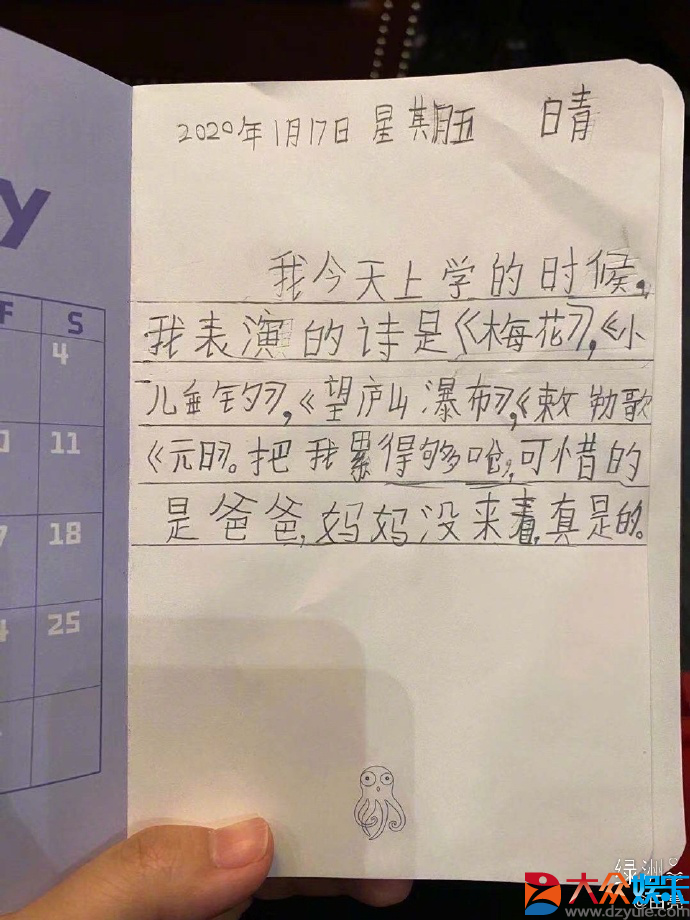 2020年1月17日 星期五 晴
我今天上学的时候,
我表演的诗是《梅花》,《小
儿垂钓》,《望庐山瀑布》,《敕勒歌
《元日》。把我累得够呛,可惜的
是爸爸,妈妈没来看,真是的。
y
F S
4
11
18
25
绿洲
大众娱乐
www.dzyule.com